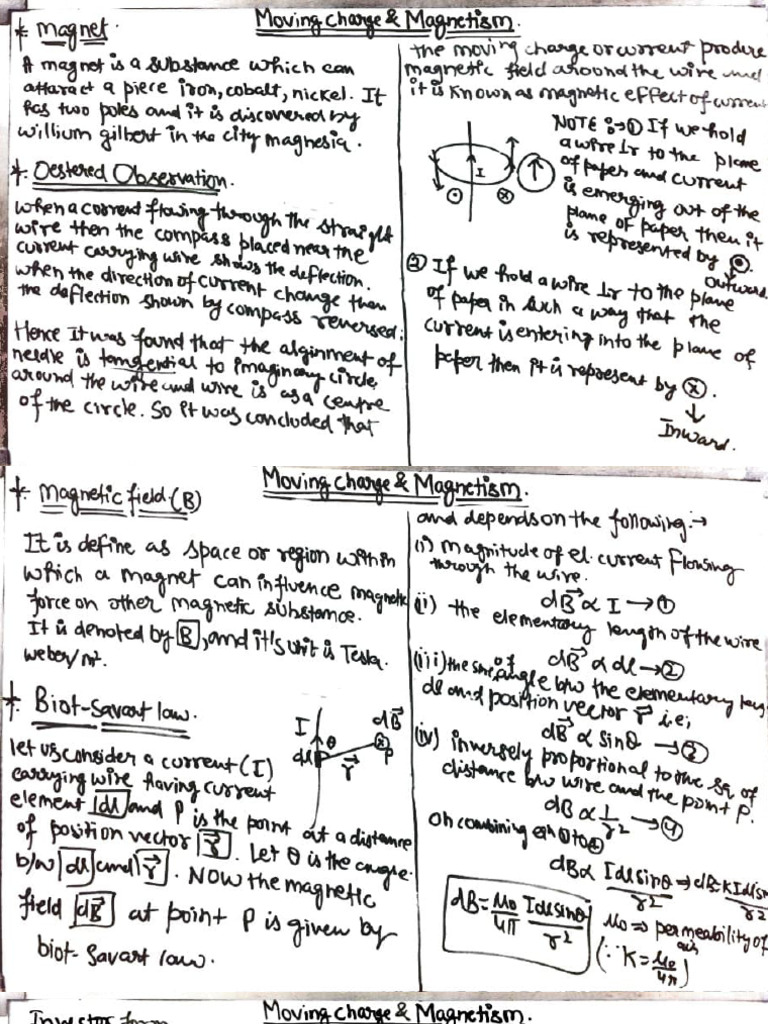 Moving charge & Magnetism.
* magnet.
A magnet is a substance which can
attaract a piece iron, cobalt, nickel. It
has two poles and it is discovered by
willium gilbert in the city magnesia.
* Oestered Observation.
when a current flowing through the straight
wire then the compass placed near the
current carrying wire shows the deflection.
when the direction of current change then
the deflection shown by compass reversed.
Hence It was found that the alginment of
neldle is tangential to imaginary circle,
around the wire and wire is as a centre
of the circle. So it was concluded that
the moving charge or current produce
magnetic field aroond the wire and
it is known as magnetic effect of current
I
NOTE :→ ① If we hold
a wire ⊥r to the plane
of paper and current
is emerging out of the
plane of paper then it
is represented by ⊙.
outward.
② If we hold a wire ⊥r to the plane
of paper in such a way that the
current is entering into the plane of
paper then it is represent by ⊗.
Inward.
Moving charge & Magnetism.
* Magnetic field (B)
It is define as space or region within
which a magnet can influence magnetic
force on other magnetic substance.
It is denoted by B, and it's unit is Tesla.
weber/m².
* Biot-Savart law.
I
dB⃗
θ
dl
r⃗
P
let us consider a current (I)
carrying wire having current
element dl and P is the point at a distance
of position vector r⃗. Let θ is the angle
b/w dl and r⃗. Now the magnetic
field dB⃗ at point P is given by
biot-Savart law.
and depends on the following:→
(i) magnitude of el. current flowing
through the wire.
dB⃗ ∝ I → ①
(ii) the elementary length of the wire
dB⃗ ∝ dl → ②
(iii) the sine of angle b/w the elementary leng
dl and position vector r⃗ i.e;
dB⃗ ∝ sinθ → ②
(iv) inversely proportional to the sq. of
distance b/w wire and the point P.
dB ∝ 1/r² → ④
On combining eqn ① to ④
dB ∝ Idlsinθ/r² ⇒ dB = KIdlsin/r²
dB = μ₀/4π Idlsinθ/r²
μ₀ ⇒ permeability of
air
(∵ K = μ₀/4π)
Moving charge & Magnetism.